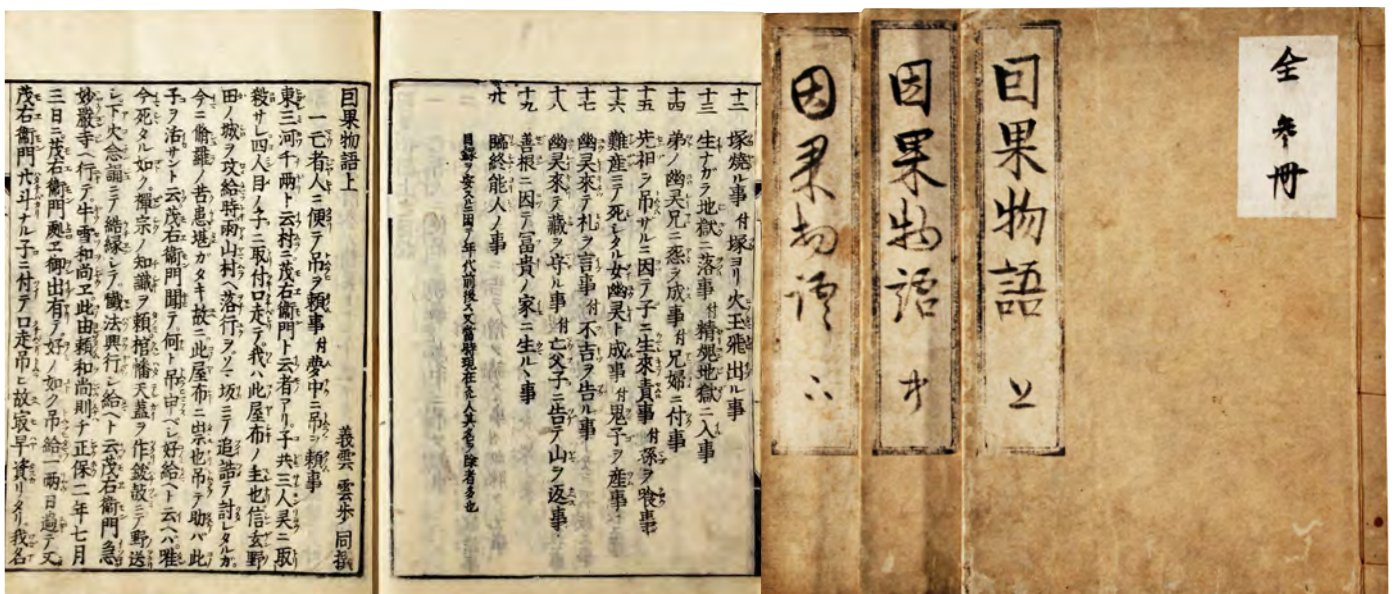 全 参冊
因果物語 上
因果物語 中
因果物語 下
十二 塚焼ル事 付塚ヨリ火玉飛出ル事
十三 生ナガラ地獄ニ落事 付精魂地獄ニ入事
十四 弟ノ幽灵兄ニ怨ヲ成事 付兄婦ニ付事
十五 先祖ヲ吊サルニ因テ子ニ生來責事 付孫ヲ喰事
十六 難産ニテ死シタル女幽灵ト成事 付鬼子ヲ産事
十七 幽灵來テ礼ヲ言事 付不吉ヲ告ル事
十八 幽灵來テ藏ヲ守ル事 付亡父子ニ告テ山ヲ返事
十九 善根ニ因テ冨貴ノ家ニ生ルヽ事
臨終能人ノ事
因果物語上 義雲 雲歩 同撰
一 亡者人ニ便テ吊ヲ頼事 付夢中ニ吊ヲ頼事
東三河千両ト云村ニ茂右衛門ト云者アリ子共三人灵ニ取
殺サレ四人目ノ子ニ取付口走テ我ハ此屋布ノ主也信玄野
田ノ城ヲ攻給時雨山村ヘ落行ヲソヾ坂ニテ追詰テ討レタルガ
今ニ脩羅ノ苦患堪ガタキ故ニ此屋布ニ祟也吊テ助バ此
子ヲ活サント云茂右衛門聞テ何ト吊申ベシ好給ヘト云ヘハ唯
今死タル如ク禪宗ノ知識ヲ頼棺幡天蓋ヲ作鈸鼓ニテ野送
シ下火念誦ニテ結縁シテ懺法興行シ給ヘト云茂右衛門急
妙嚴寺ヘ行テ牛雪和尚ヱ此由頼和尚則チ正保二年七月
三日ニ茂右衛門處ヱ御出有テ好ノ如ク吊給一兩日過テ又
茂右衛門弋斗ナル子ニ付テ口走吊ヒ故寂早資リタリ我名